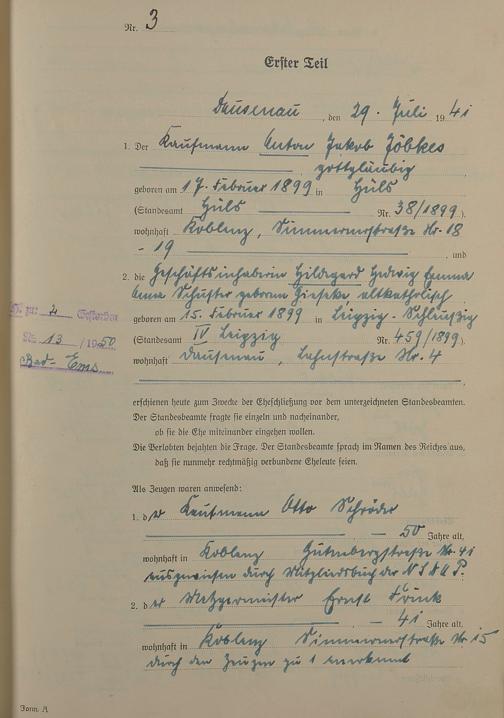 Nr. 3
Erster Teil
Dausenau, den 29. Juli 1941
1. Der Kaufmann Anton Jakob Jöbkes
gottgläubig
geboren am 17. Februar 1899 in Hüls
(Standesamt Hüls Nr. 38/1899).
wohnhaft Koblenz, Simmernstraße Nr. 18
- 19, und
2. die Geschäftsinhaberin Hildegard Hedwig Emma
Anna Schuster geborene Gieseke, altkatholisch
geboren am 15. Februar 1899 in Leipzig-Schleußig
(Standesamt IV Leipzig Nr. 459/1899).
wohnhaft Dausenau, Lahnstraße Nr. 4
zu: 2 Gestorben
Nr. 13/1950
Bad-Ems
erschienen heute zum Zwecke der Eheschließung vor dem unterzeichneten Standesbeamten.
Der Standesbeamte fragte sie einzeln und nacheinander,
ob sie die Ehe miteinander eingehen wollen.
Die Verlobten bejahten die Frage. Der Standesbeamte sprach im Namen des Reiches aus,
daß sie nunmehr rechtmäßig verbundene Eheleute seien.
Als Zeugen waren anwesend:
1. der Kaufmann Otto Schröder
— 50 Jahre alt,
wohnhaft in Koblenz Gutenbergstraße Nr. 41
ausgewiesen durch Mitgliedsbuch der NSDAP.
2. der Metzgermeister Ernst
— 41 Jahre alt,
wohnhaft in Koblenz Simmernstraße Nr 15
durch den Zeugen zu 1 anerkannt
Form. A